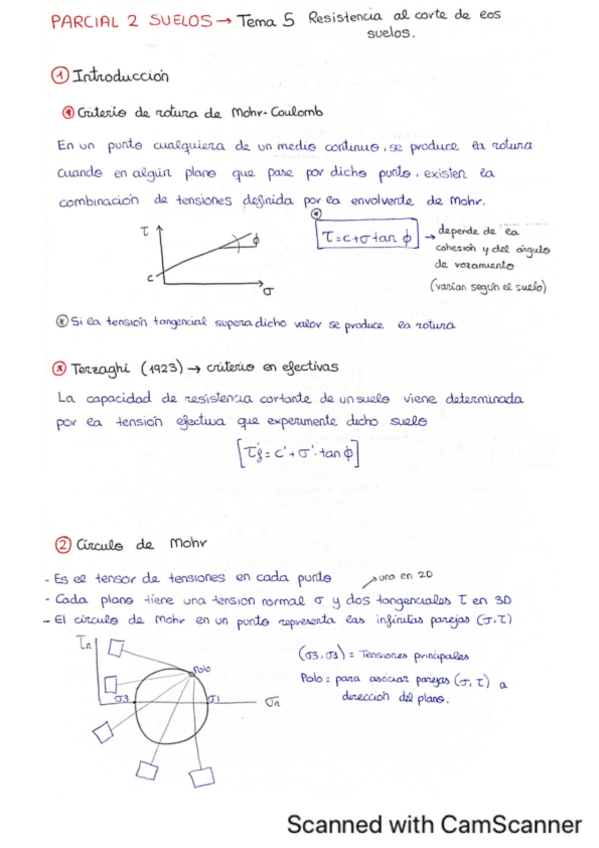 PARCIAL 2 SUELOS → Tema 5 Resistencia al corte de los
suelos.
① Introducción
* Criterio de rotura de Mohr-Coulomb
En un punto cualquiera de un medio continuo, se produce la rotura
cuando en algún plano que pase por dicho punto, existen la
combinación de tensiones definida por la envolvente de Mohr.
τ
ϕ
c
σ
*
τ=c+σ tan ϕ
→ depende de la
cohesión y del ángulo
de rozamiento
(varían según el suelo)
* Si la tensión tangencial supera dicho valor se produce la rotura
* Terzaghi (1923) → criterio en efectivas
La capacidad de resistencia cortante de un suelo viene determinada
por la tensión efectiva que experimente dicho suelo
[τ'f = c' + σ'· tan ϕ]
② Círculo de Mohr
- Es el tensor de tensiones en cada punto
→ una en 2D
- Cada plano tiene una tension normal σ y dos tangenciales τ en 3D
- El círculo de Mohr en un punto representa las infinitas parejas (σ, τ)
τn
Polo
σ3
σ1
σn
(σ3, σ1) = Tensiones principales
Polo = para asociar parejas (σ, τ) a
dirección del plano.
Scanned with CamScanner